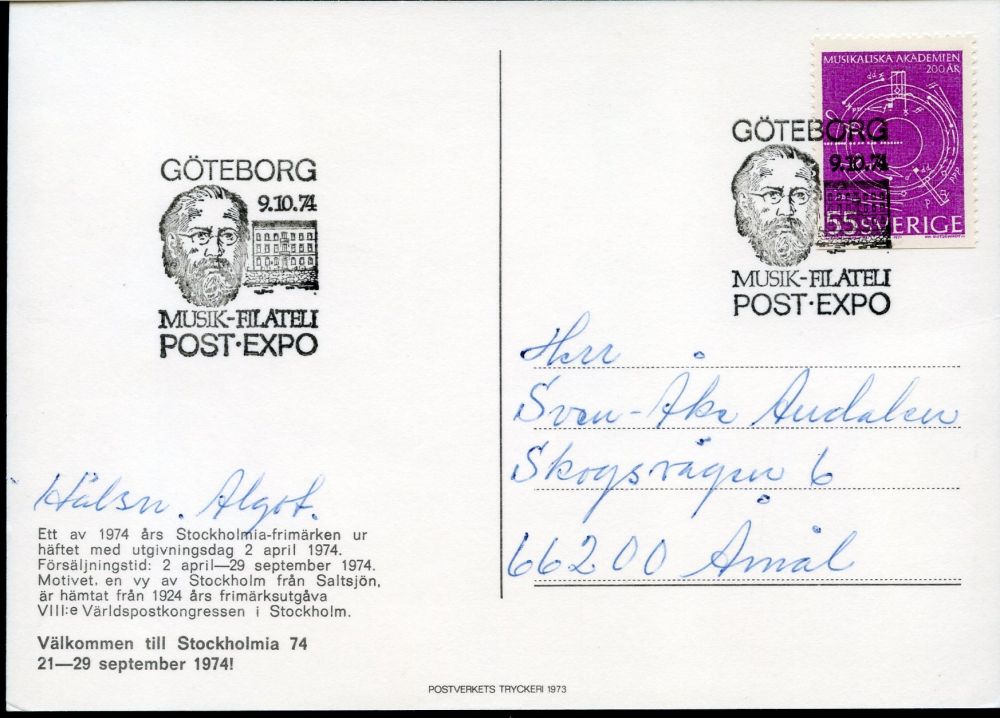 GÖTEBORG
9.10.74
MUSIK-FILATELI
POST·EXPO
Hälsn. Algot.
Ett av 1974 års Stockholmia-frimärken ur
häftet med utgivningsdag 2 april 1974.
Försäljningstid: 2 april—29 september 1974.
Motivet, en vy av Stockholm från Saltsjön,
är hämtat från 1924 års frimärksutgåva
VIII:e Världspostkongressen i Stockholm.
Välkommen till Stockholmia 74
21—29 september 1974!
POSTVERKETS TRYCKERI 1973
MUSIKALISKA AKADEMIEN
200 ÅR
55 SVERIGE
GÖTEBORG
9.10.74
MUSIK-FILATELI
POST·EXPO
Herr
Sven-Åke Andalen
Skogsvägen 6
66200 Åmål